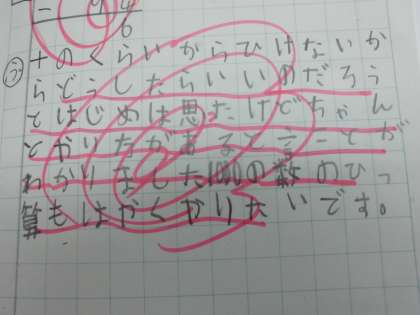 - 94
6
㋫ 十のくらいからひけないか
らどうしたらいいのだろう
とはじめは思たけどちゃん
とやりかたがあると言ことが
わかりました100の数のひっ
算もはやくやりたいです。